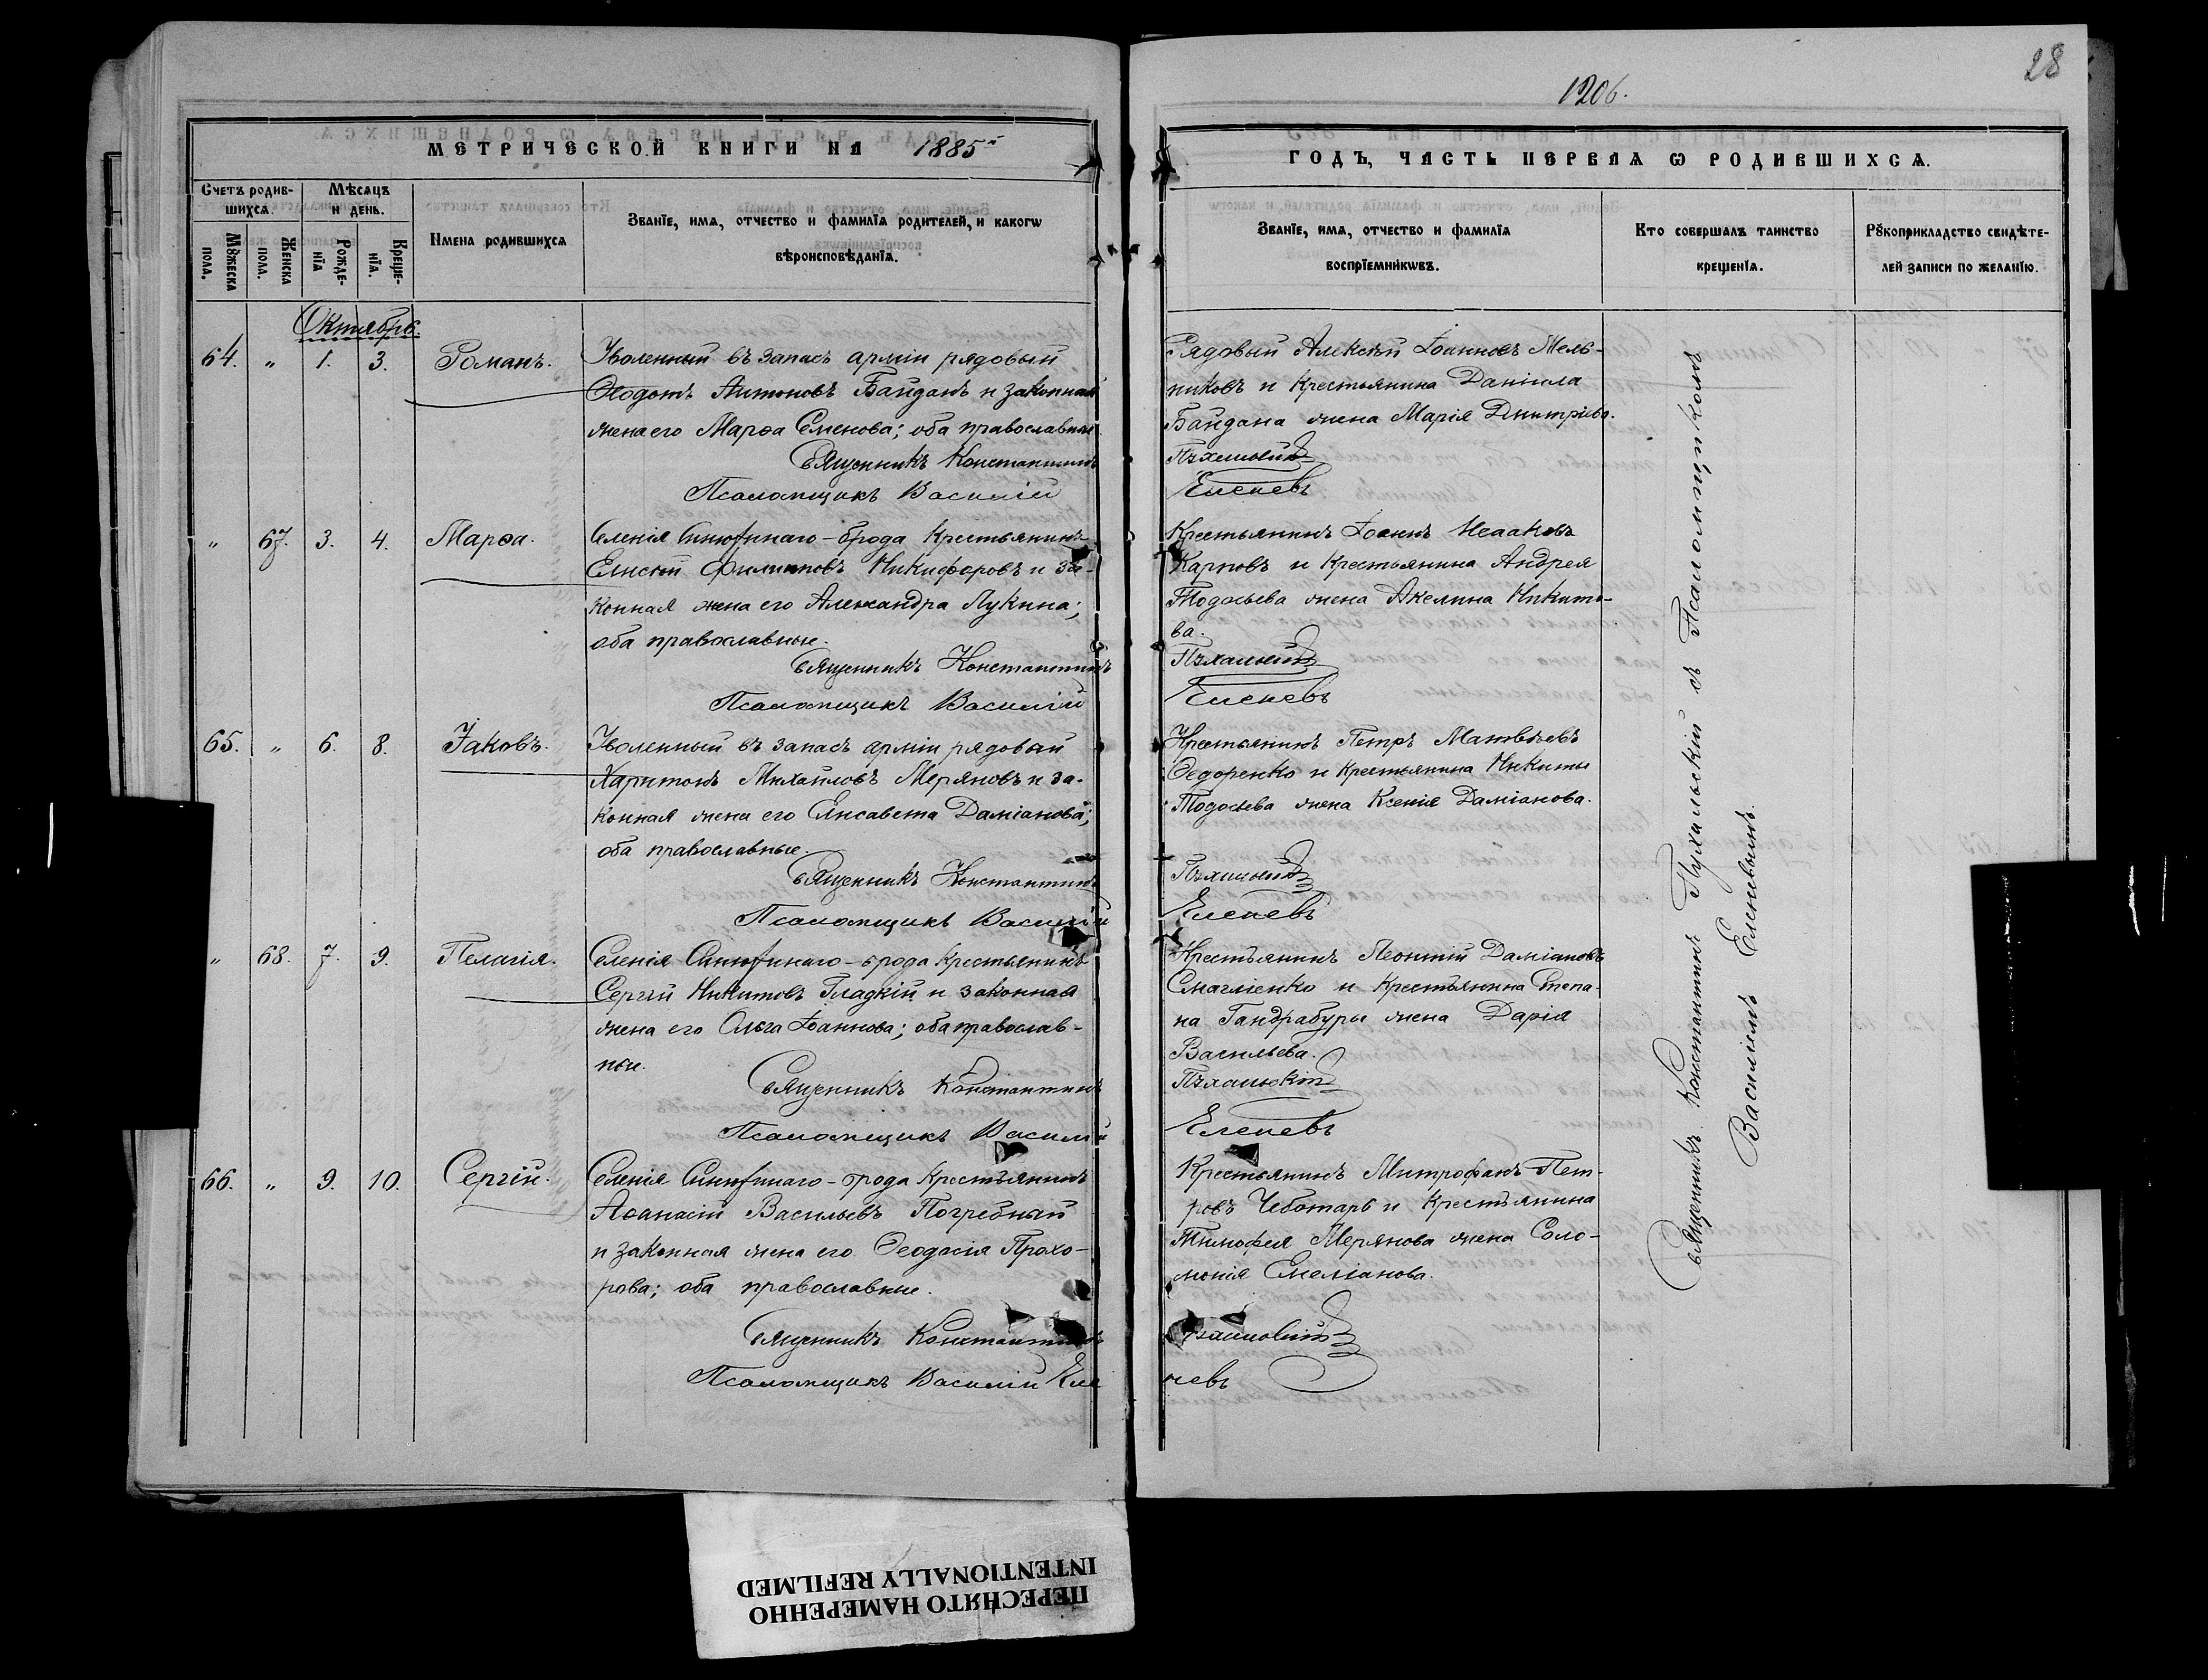 28
1206.
МЕТРИЧЕСКОЙ КНИГИ НА 1885й
ГОДЪ, ЧАСТЬ ПЕРВАЯ Ѡ РОДИВШИХСѦ.
Счетъ родив-
шихсѧ.
Мѣсѧцъ
и день.
Мꙋжеска
пола.
Женска
пола.
Рожде-
нїѧ
Креще-
нїѧ.
Имена родившихсѧ
Званїе, имѧ, отчество и фамилїѧ родителей, и какогѡ
вѣроисповѣданїѧ.
Званїе, имѧ, отчество и фамилїѧ
воспрїемникѡвъ.
Кто совершалъ таинство
крещенїѧ.
Рꙋкоприкладство свидѣте-
лей записи по желанїю.
Октябрь.
64. " 1. 3. Романъ.
Уволенный въ запасъ арміи рядовый
Ѳеодотъ Антоновъ Байданъ и законная
жена его Марѳа Семенова; оба православные
Священникъ Константинъ
Псаломщикъ Василій
Рядовый Алексѣй Іоанновъ Мель-
никовъ и крестьянина Даніила
Байдана жена Марія Дмитріева.
Пухальскій
Еленевъ
" 67. 3. 4. Марѳа.
Селенія Синюхинаго-брода крестьянинъ
Елисей Филипповъ Никифоровъ и за-
конная жена его Александра Лукина;
оба православные.
Священникъ Константинъ
Псаломщикъ Василій
Крестьянинъ Іоаннъ Исааковъ
Карповъ и крестьянина Андрея
Тодосьева жена Акелина Никито-
ва.
Пухальскій
Еленевъ
65. " 6. 8. Іаковъ.
Уволенный въ запасъ арміи рядовый
Харитонъ Михайловъ Меряновъ и за-
конная жена его Елисавета Даміанова;
оба православные.
Священникъ Константинъ
Псаломщикъ Василій
Крестьянинъ Петръ Матвѣевъ
Ѳедоренко и крестьянина Никиты
Тодосьева жена Ксенія Даміанова.
Пухальскій
Еленевъ
" 68. 7. 9. Пелагія.
Селенія Синюхинаго-брода крестьянинъ
Сергій Никитовъ Гладкій и законная
жена его Ольга Іоаннова; оба православ-
ные.
Священникъ Константинъ
Псаломщикъ Василій
Крестьянинъ Леонтій Даміановъ
и крестьянина Степа-
на Гандрабуры жена Дарія
Васильева.
Пухальскій
Еленевъ
66. " 9. 10. Сергій.
Селенія Синюхинаго-брода крестьянинъ
Аѳанасій Васильевъ Погребный
и законная жена его Ѳеодосія Прохо-
рова; оба православные.
Священникъ Константинъ
Псаломщикъ Василій Еле
Крестьянинъ Митрофанъ Пет-
ровъ Чеботарь и крестьянина
Тимофея Мерянова жена Соло-
монія Емеліанова.
Пухальскій
невъ
Священникъ Константинъ Пухальскій съ Псаломщикомъ
Василіемъ Еленевымъ.
ПЕРЕСНЯТО НАМЕРЕННО
INTENTIONALLY REFILMED